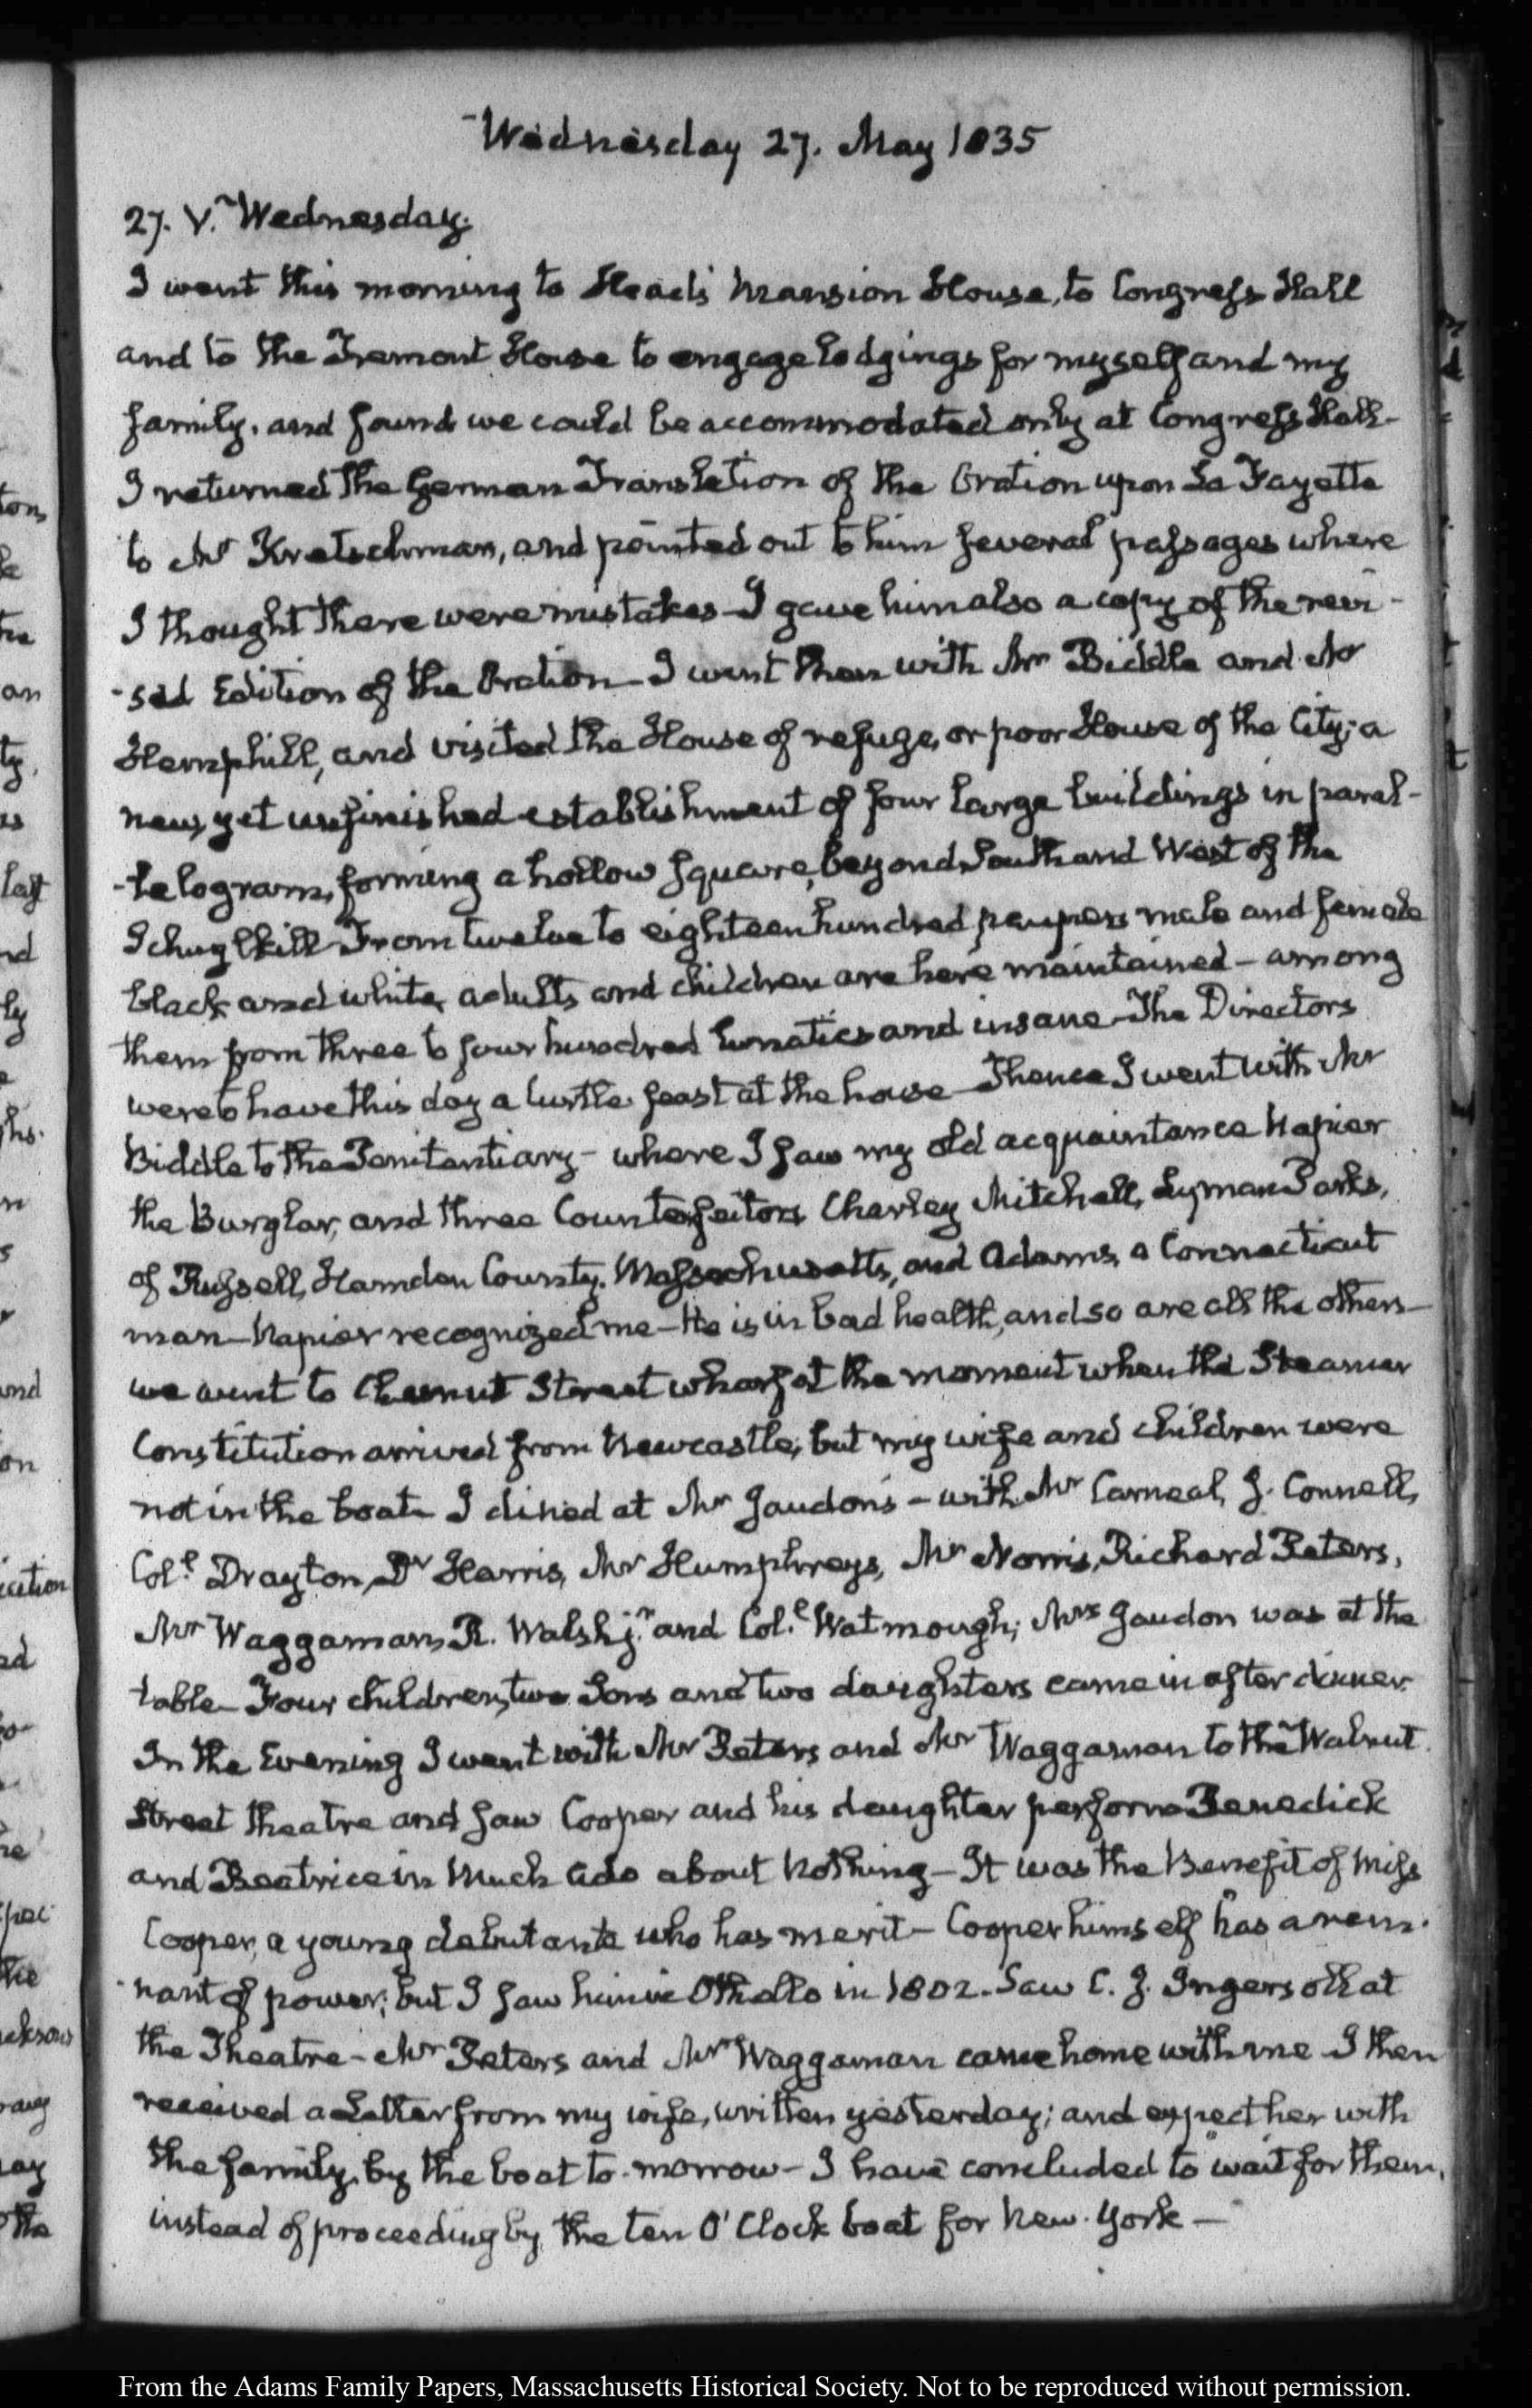 Wednesday 27. May 1835
27. V. Wednesday.
I went this morning to Head's Mansion House, to Congress Hall
and to the Tremont House to engage lodgings for myself and my
family, and found we could be accommodated only at Congress Hall-
I returned the German Translation of the Oration upon La Fayette
to Mr Kretschman, and pointed out to him several passages where
I thought there were mistakes- I gave him also a copy of the revi-
-sed Edition of the Oration- I went then with Mr Biddle and Mr
Hemphill, and visited the House of refuge, or poor House of the City; a
new, yet unfinished establishment of four large buildings in paral-
-lelogram, forming a hollow square, beyond South and West of the
Schuylkill- From twelve to eighteen hundred paupers male and female
black and white, adults and children are here maintained- among
them from three to four hundred lunatics and insane- The Directors
were to have this day a turtle feast at the house- Thence I went with Mr
Biddle to the Penitentiary- where I saw my old acquaintance Napier
the Burglar, and three Counterfeitors Charley Mitchell, Lyman Parks,
of Russell, Hamden County, Massachusetts, and Adams, a Connecticut
man- Napier recognized me- He is in bad health, and so are all the others-
we went to Chesnut Street wharf at the moment when the Steamer
Constitution arrived from Newcastle; but my wife and children were
not in the boat- I dined at Mr Jaudon's- with Mr Carneal, J. Connell,
Col.l Drayton, Dr Harris, Mr Humphreys, Mr Norris, Richard Peters,
Mr Waggaman, R. Walsh jr. and Col.l Watmough; Mrs Jaudon was at the
table- Four children, two Sons and two daughters came in after dinner.
In the Evening I went with Mr Peters and Mr Waggaman to the Walnut
Street theatre and saw Cooper and his daughter perform Benedick
and Beatrice in Much Ado about Nothing- It was the Benefit of Miss
Cooper, a young debutante who has merit- Cooper himself has a rem-
-nant of power; but I saw him in Othello in 1802. Saw C. J. Ingersoll at
the Theatre- Mr Peters and Mr Waggaman came home with me- I then
received a Letter from my wife, written yesterday; and expect her with
the family, by the boat to-morrow- I have concluded to wait for them,
instead of proceeding by the ten O'Clock boat for New-York-
From the Adams Family Papers, Massachusetts Historical Society. Not to be reproduced without permission.